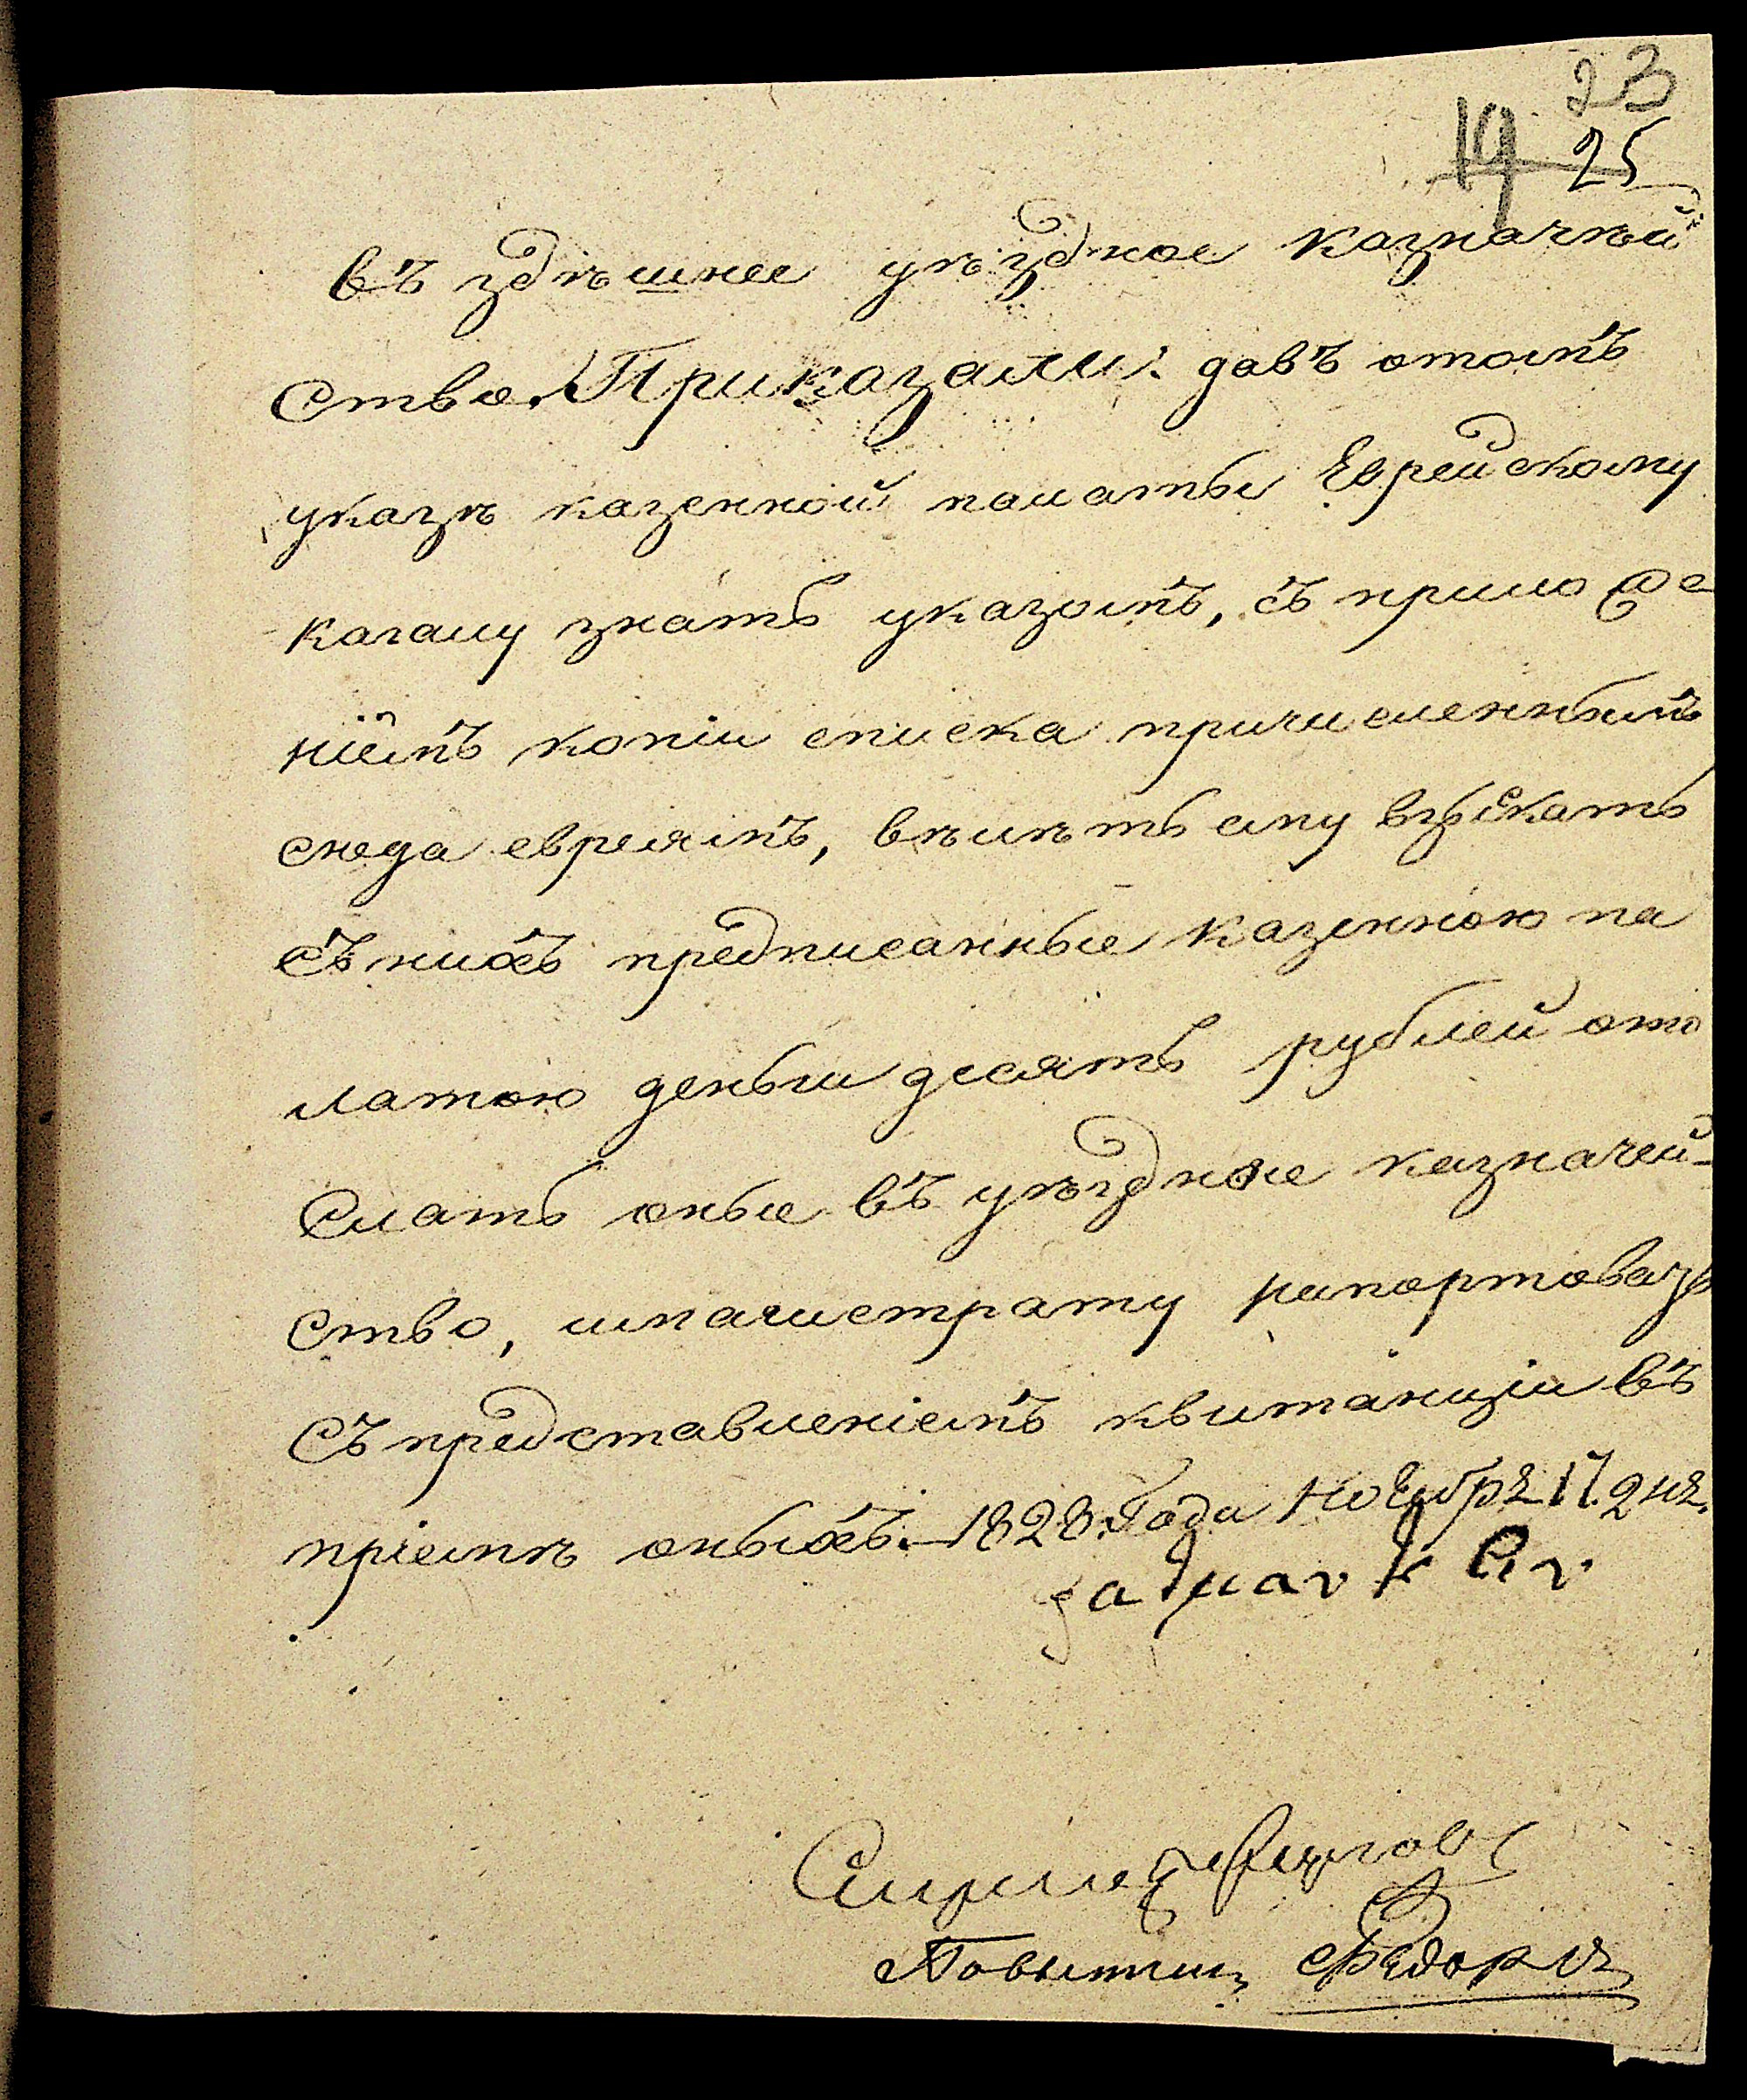 23
19 25
въ здѣшнее уѣздное казначѣй
ство. Приказали: давъ отомъ
указѣ казенной палаты Еврейскому
кагалу знать указомъ, съ приложе
ніемъ копіи списка причисленнымъ
сюда евреямъ, вѣлѣть ему взыскать
съ нихъ предписанные казенною па
латою деньги десять рублей ото
слать оные въ уѣздное казначей-
ство, имагистрату рапортовать
съ представленіемъ квитанціи въ
пріемѣ оныхъ. 1828 Года Ноября 17. дня.
Повытчикъ Федоръ